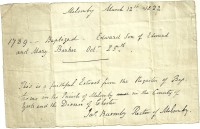 Melsonby March 12th 1822
1789 - Baptized Edward Son of Edward
and Mary Barker Oct. 28th
This is a faithful Extract from the Register of Bap-
tisms in the Parish of Melsonby in the County of
York and the Diocese of Chester
Rector of Melsonby